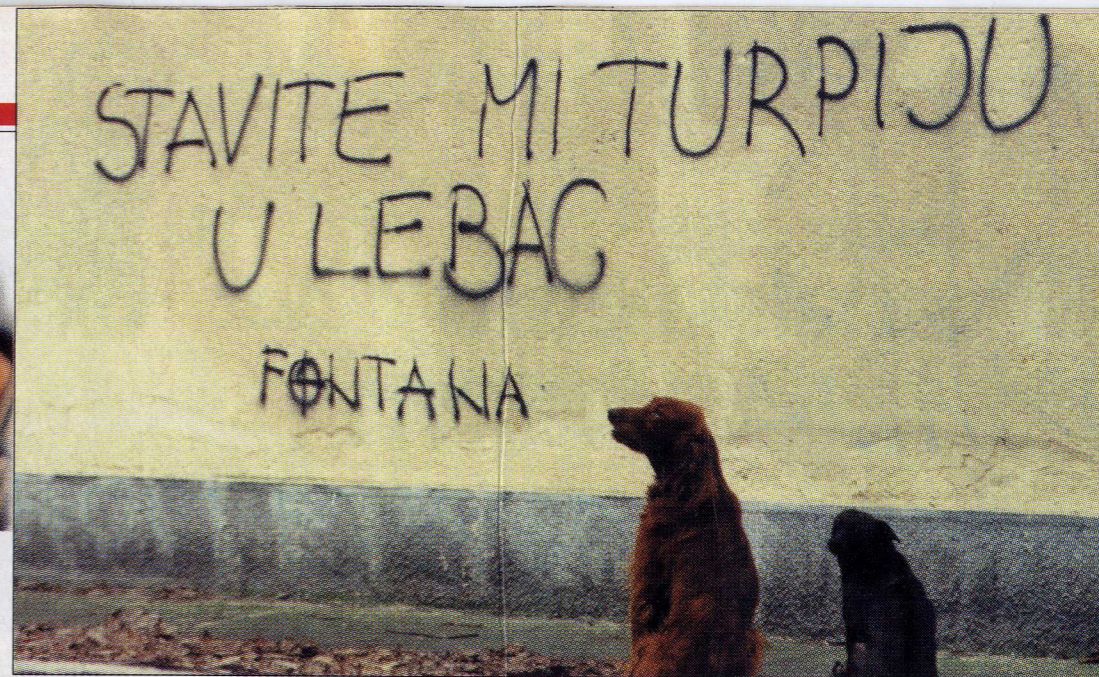 STAVITE MI TURPIJU
U LEBAC
FONTANA